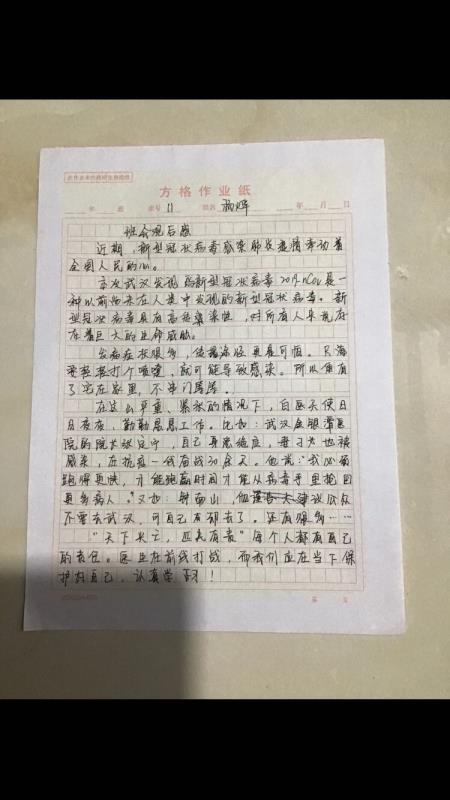 方格作业纸
年 班 座号 11 姓名 年 月 日
班会观后感
近期，新型冠状病毒感染肺炎疫情牵动着
全国人民的心。
本次武汉发现的新型冠状病毒2019-nCov是一
种以前尚未在人类中发现的新型冠状病毒。新
型冠状病毒具有高传染性，对所有人来说存
在着巨大的生命威胁。
发病症状很多，传播途径更是可怕。只需
要轻轻打个喷嚏，就可能导致感染。所以唯有
了宅在家里，不串门
在这么严重、紧张的情况下，白医天使日
日夜夜，勤勤恳恳工作。比如：武汉金银潭医
院的院长张定宇，自己身患绝症，妻子为也被
感染，在抗疫一线奋战30余天。他说："我必须
跑得更快，才能跑赢时间才能从病毒手里抢回
更多病人。"又如：钟南山，他建议公众
不要去武汉，可自己却去了。还有很多……
"天下兴亡，匹夫有责"每个人都有自己
的责任。医生在前线打战，而我们应在当下保
护好自己，认真学习！